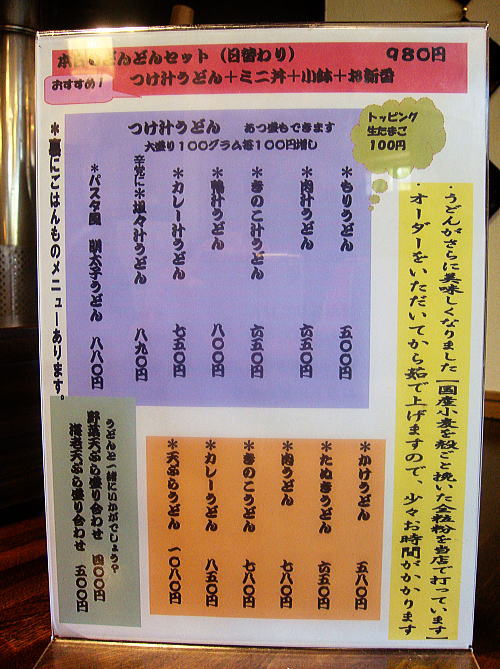 本日のどんどんセット（日替わり） 980円
おすすめ！
つけ汁うどん＋ミニ丼＋小鉢＋お新香
つけ汁うどん あつ盛もできます
大盛り100グラム毎100円増し
トッピング
生たまご
100円
・うどんがさらに美味しくなりました【国産小麦を殻ごと挽いた全粒粉を当店で打っています】
・オーダーをいただいてから茹で上げますので、少々お時間がかかります
＊もりうどん 五〇〇円
＊肉汁うどん 六五〇円
＊きのこ汁うどん 六五〇円
＊鴨汁うどん 八〇〇円
＊カレー汁うどん 七五〇円
辛党に＊坦々汁うどん 八九〇円
＊パスタ風 明太子うどん 八八〇円
＊裏にごはんものメニューあります。
＊かけうどん 五八〇円
＊たぬきうどん 六五〇円
＊肉うどん 七八〇円
＊きのこうどん 七八〇円
＊カレーうどん 八五〇円
＊天ぷらうどん 一〇八〇円
うどんと一緒にいかがでしょう？
野菜天ぷら盛り合わせ 四〇〇円
海老天ぷら盛り合わせ 五〇〇円